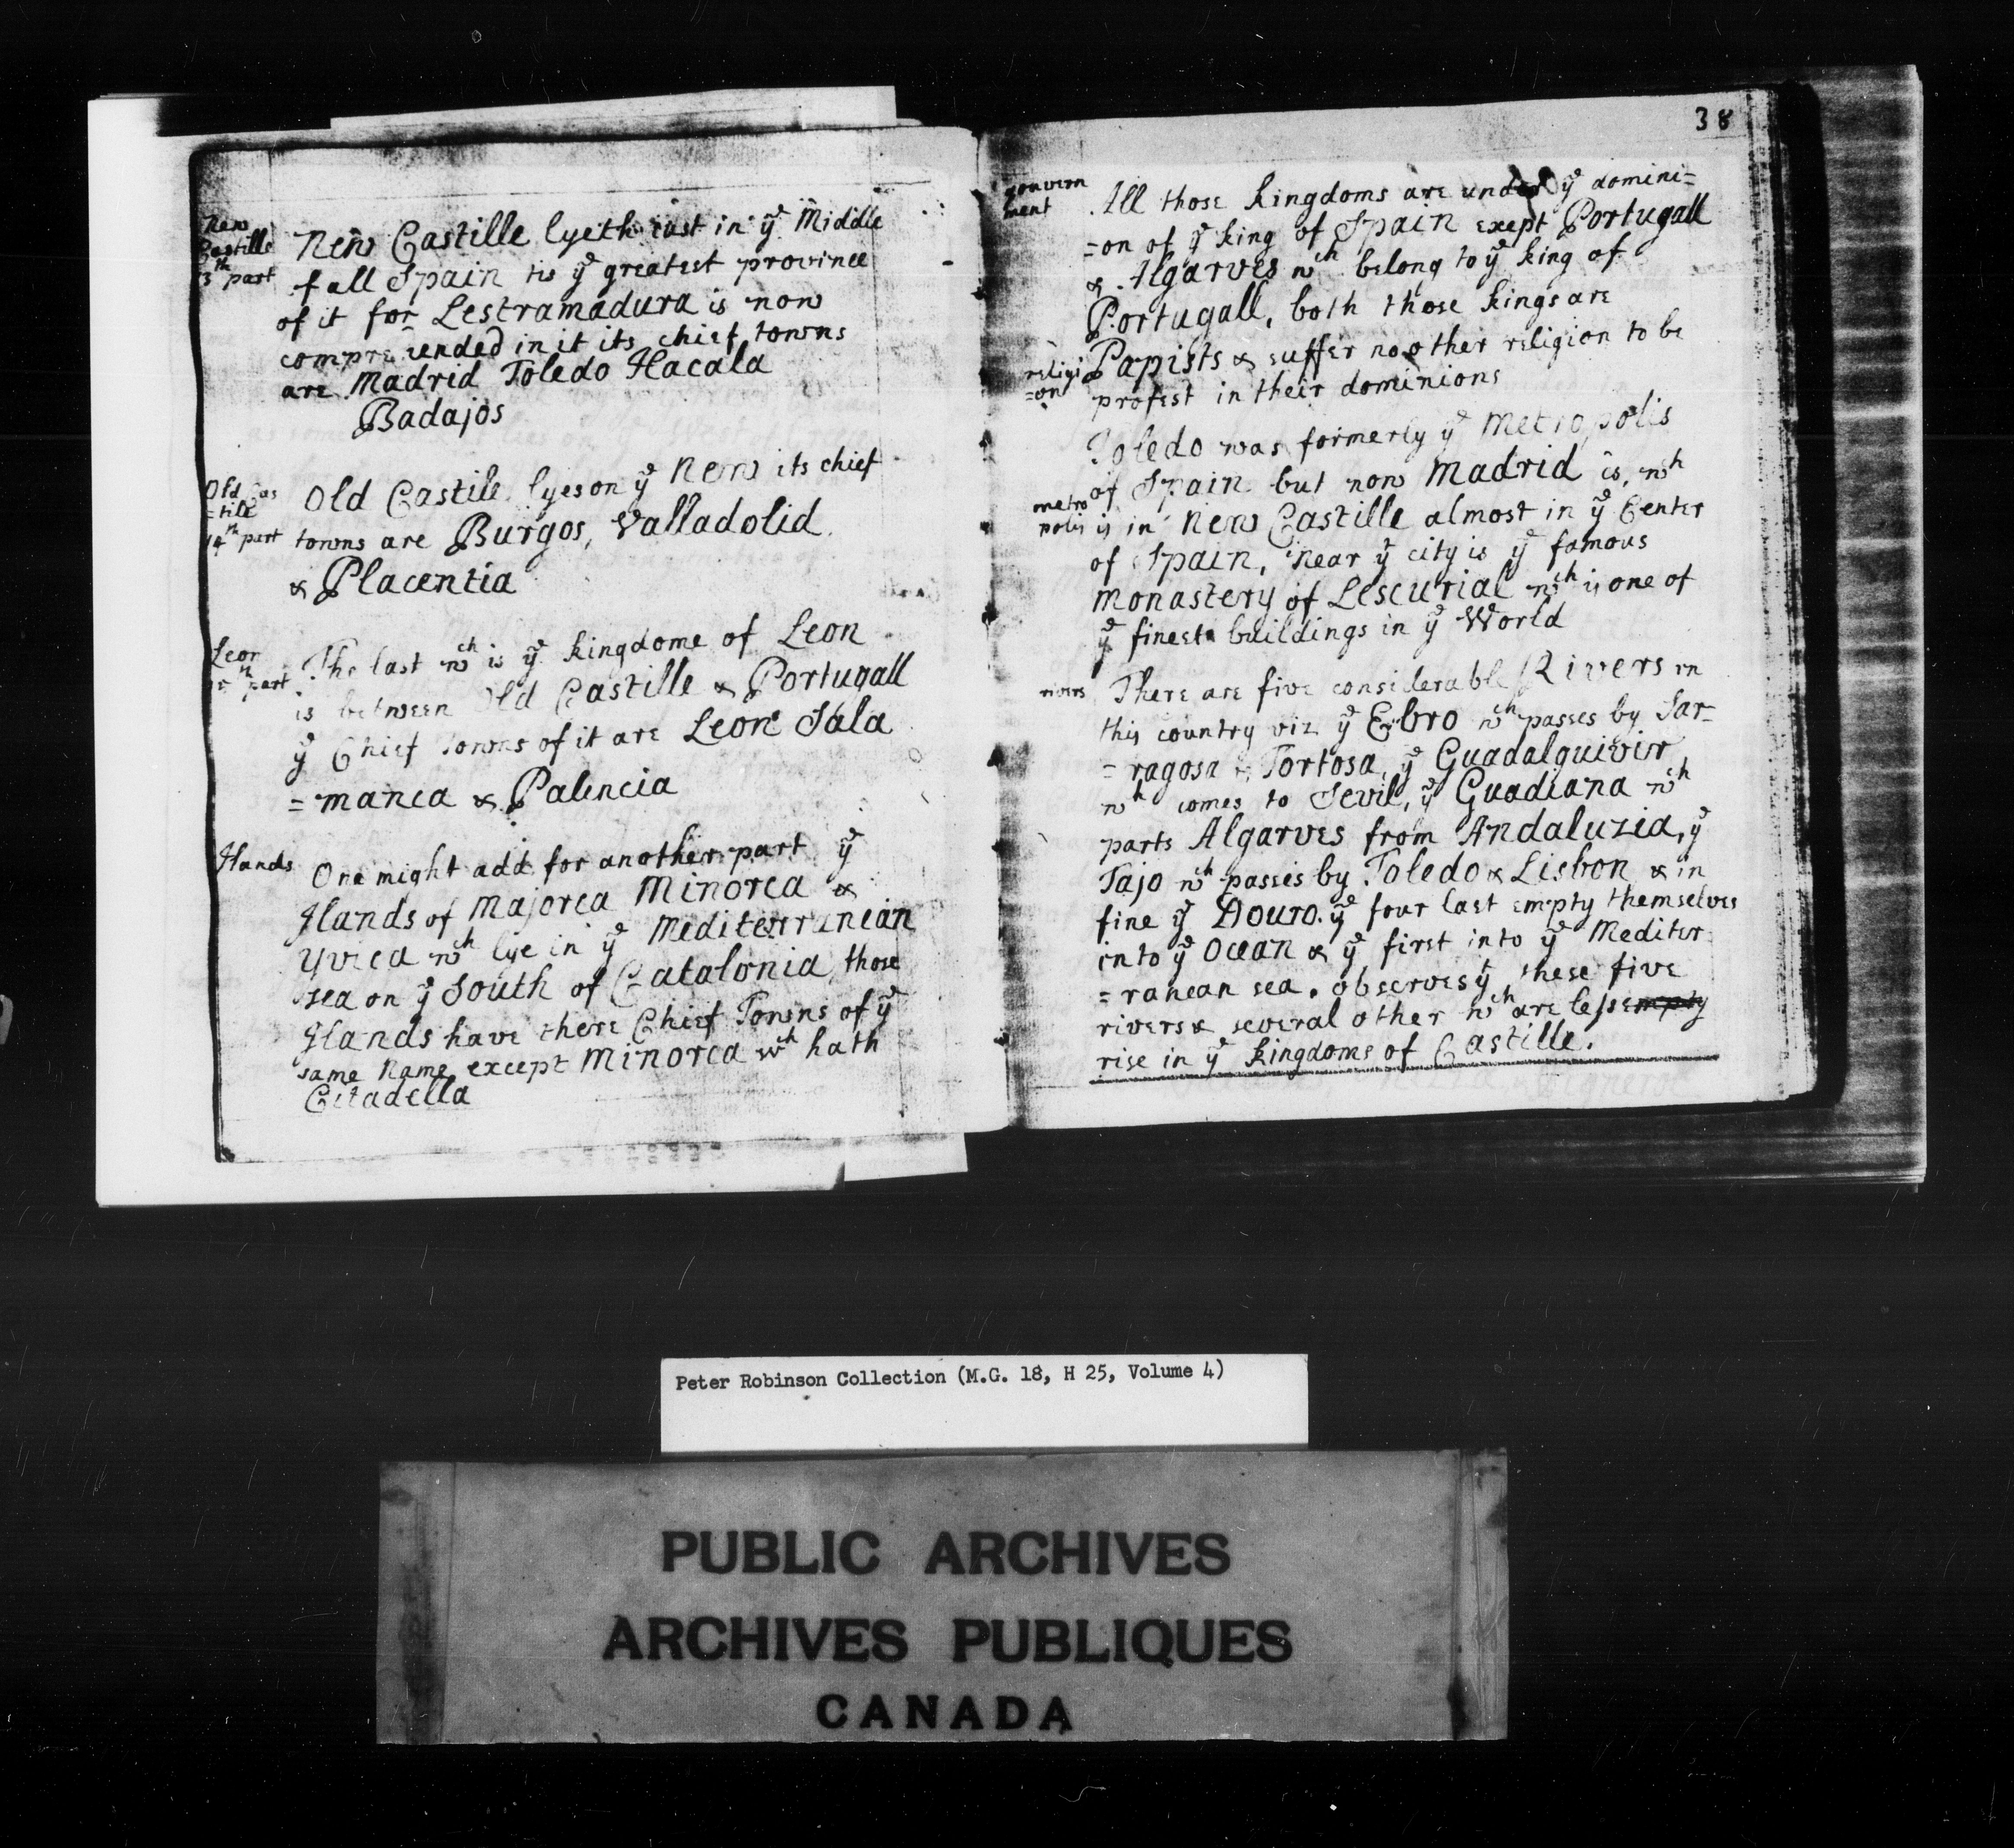 New
Castille
13th part
New Castille lyeth just in ye Middle
of all Spain tis ye greatest province
of it for Lestramadura is now
comprehended in it its chief towns
are Madrid Toledo Hacala
Badajos
Old Cas
=tile
14th part
Old Castile lyes on ye New its chief
towns are Burgos, Valladolid
& Placentia
Leon
15th part
The last wch is ye kingdome of Leon
is between Old Castille & Portugall
ye Chief Towns of it are Leon Sala
=manca & Palencia
Ilands
One might add for another part ye
Ilands of Majorca Minorca &
Yvica wch lye in ye Mediterranean
sea on ye South of Catalonia, those
Ilands have there Chief Towns of ye
same Name except Minorca wch hath
Citadella
38
govern
ment
All those kingdoms are under ye domini=
=on of ye king of Spain exept Portugall
& Algarves wch belong to ye king of
Portugall, both those kings are
religi
=on
Papists & suffer no other religion to be
profest in their dominions
Toledo was formerly ye Metropolis
of Spain but now Madrid is, wch
metro
polis
is in New Castille almost in ye Center
of Spain, near ye city is ye famous
monastery of Lescurial wch is one of
ye finest buildings in ye World
rivers
There are five considerable Rivers in
this country viz ye Ebro wch passes by Sar=
=ragosa & Tortosa, ye Guadalquivir
wch comes to Sevil, ye Guadiana wch
parts Algarves from Andaluzia, ye
Tajo wch passes by Toledo & Lisbon & in
fine ye Douro. ye four last empty themselves
into ye Ocean & ye first into ye Mediter
=ranean sea. observe yt these five
rivers & several other wch are less empty
rise in ye kingdoms of Castille.
Peter Robinson Collection (M.G. 18, H 25, Volume 4)
PUBLIC ARCHIVES
ARCHIVES PUBLIQUES
CANADA